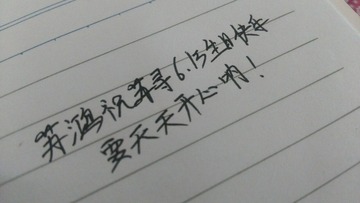 苏鸿祝苏寻6.15生日快乐
要天天开心哟!